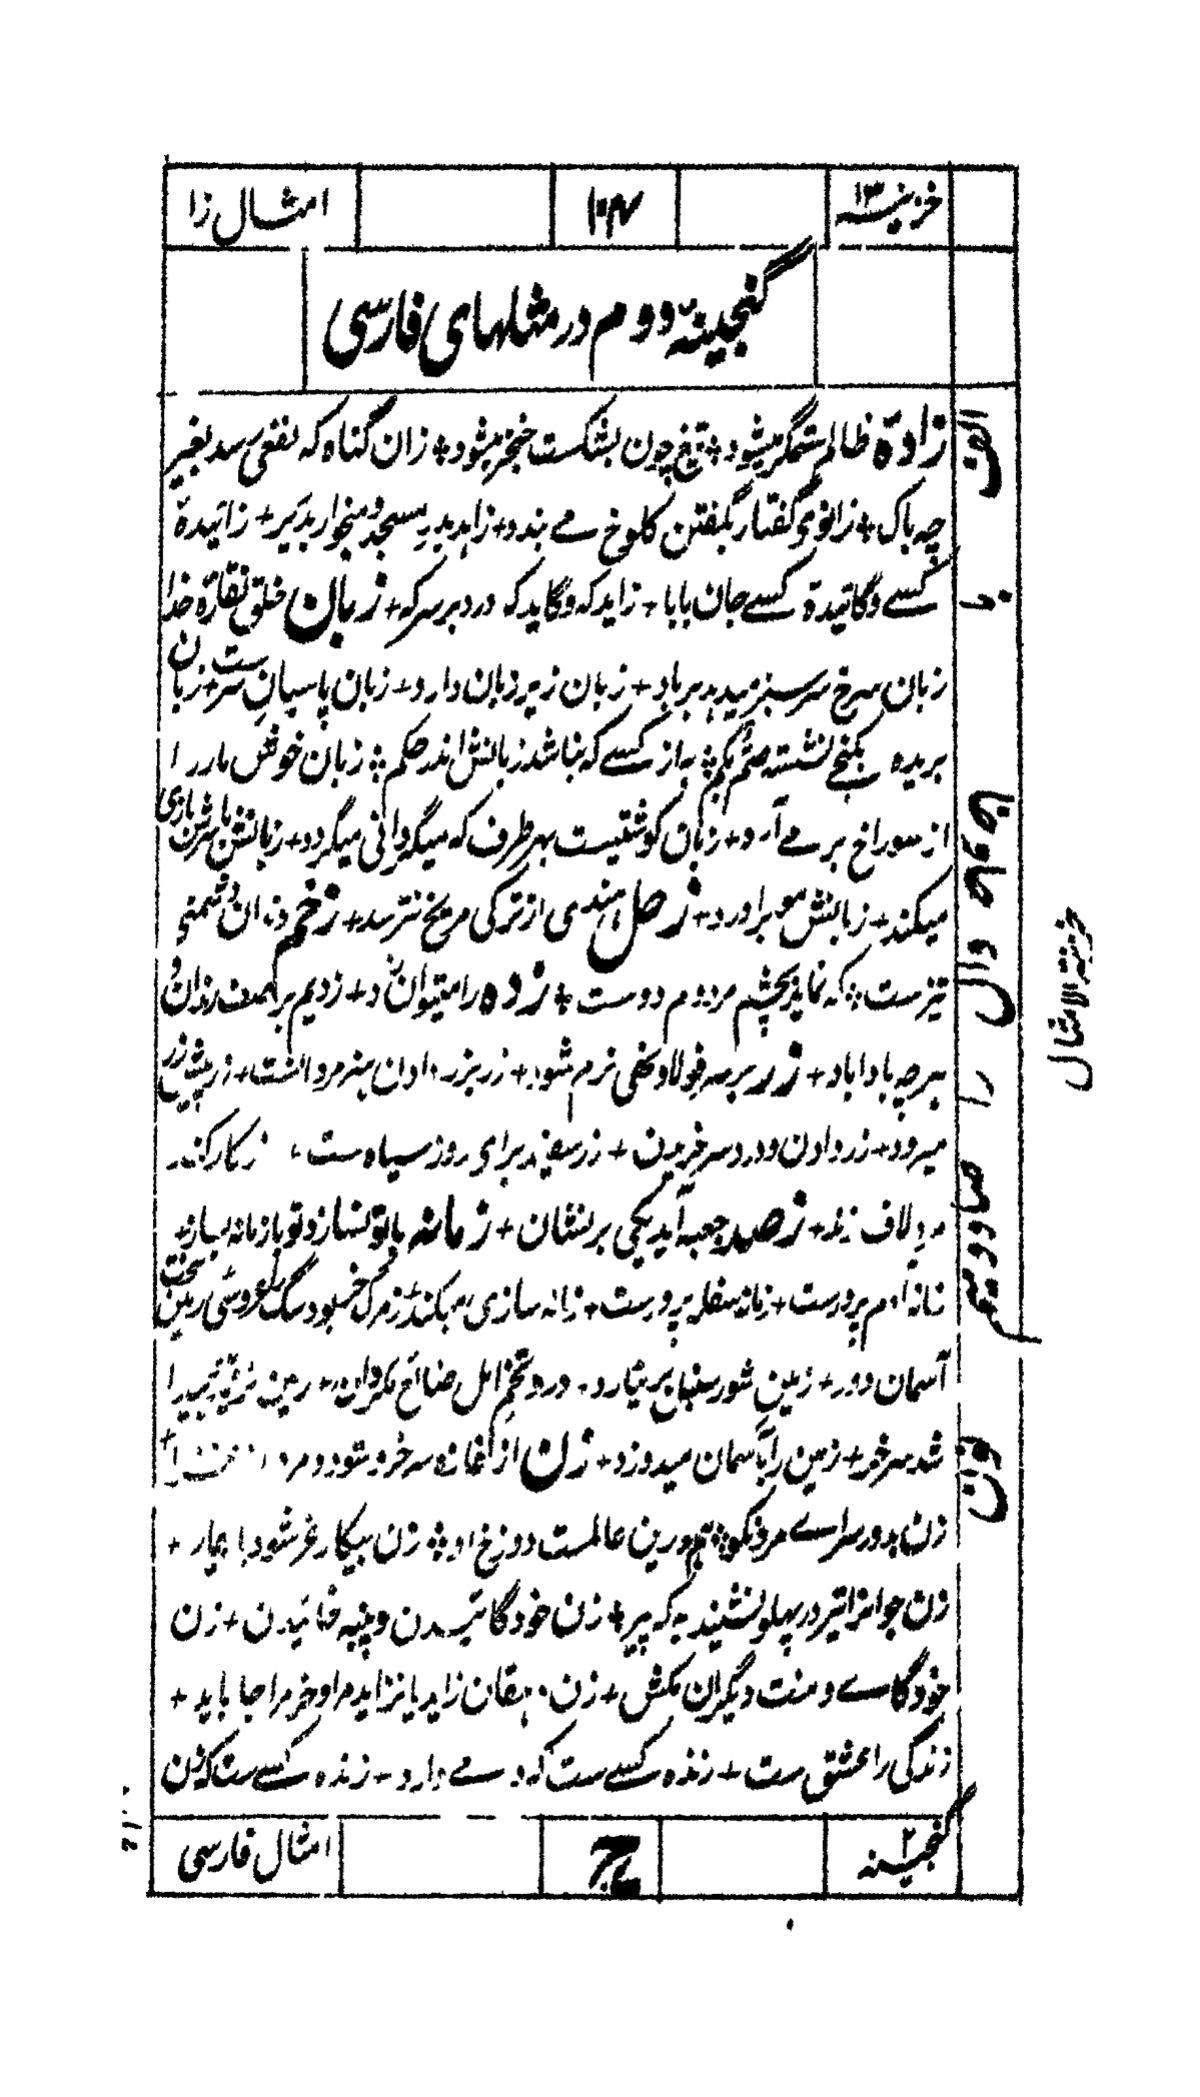 خزینہ ۱۳
۱۰۴
امثال زا
گنجینۂ دوم در مثلہای فارسی
زادۂ ظالم ستمگر میشود + تیغ چون بشکست خنجر میشود + زان گناہ کہ نفعی رسد بغیر
چہ باک + زانوی گفتار بگفتن کلوخ مے بندد + زاہد بدر مسجد و میخوار بدیر + زائیدۂ
کسے و گائیدۂ کسے جان بابا + زاید کہ و گاید کہ درد بر سر کہ + زبان خلق نقارۂ خدا ست
زبان سرخ سر سبز میدہد برباد + زبان زیر زبان دارد + زبان پاسبان سر ست + زبان
بریدہ بکنجے نشستہ صم بکم + بہ از کسے کہ نباشد زبانش اندر حکم + زبان خوش مار را
از سوراخ بر مے آرد + زبان گوشتیست بہر طرف کہ میگردانی میگردد + زبانش با سرش بازی
میکند + زبانش مو برآورد + زحل ہندی از ترکی مریخ نترسد + زخم دندان دشمنے
تیزست + کہ نماید بچشم مردم دوست + زدہ را میتوان زد + زدیم بر صف رندان و
ہرچہ بادا باد + زر بر سر فولاد نہی نرم شود + زر بزر دادن ہنر مردانست + زر پیش زر
میرود + زر دادن و درد سر خریدن + زر سفید برای روز سیاہ ست + زر کار کند
مرد لاف زند + زصد جعبہ آید یکی بر نشان + زمانہ با تو نسازد تو با زمانہ بساز +
زمانہ سفلہ پرورست + زمانہ سازی میکند + زمرگ خر بود سگ را عروسی + زمین سخت
آسمان دور + زمین شور سنبل بر نیارد + درو تخم امل ضائع مگردان +
شد سر خر + زمین را بآسمان میدوزد + زن از غازہ سرخ رو شود و مرد
زن بد در سرائے مرد نکو + ہم درین عالمست دوزخ او + زن بیکار غر شود یا بیمار +
زن جوانرا تیر در پہلو نشیند بہ کہ پیر + زن خود گائیدن و پنبہ خائیدن + زن
خود گاے و منت دیگران مکش + زن دہقان زاید یا نزاید مرا و خر مرا جا باید +
زندگی را عشق ست + زندہ کسے ست کہ دمے دارد + زندہ کسے ست کہ زن
گنجینہ ۲
امثال فارسی
خزینۃ الامثال